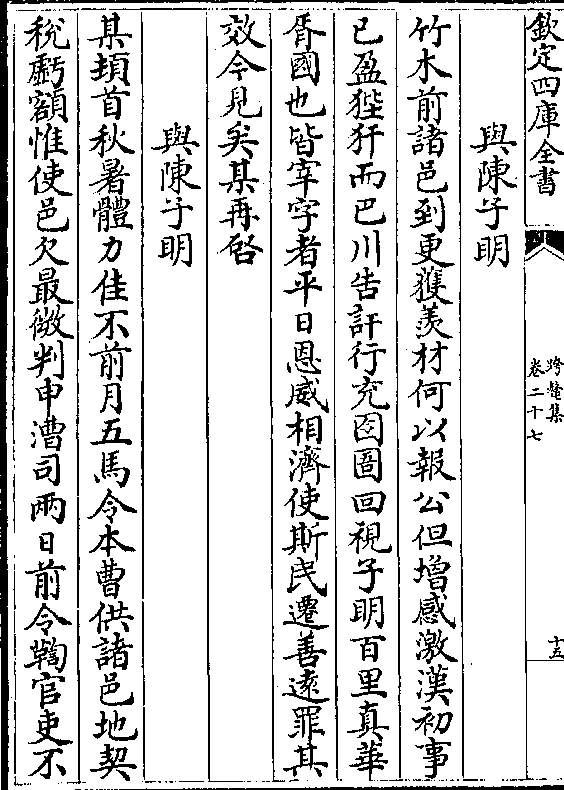 欽定四庫全書
跨鼇集
卷二十七
十五
與陳子明
竹木前諸邑到更獲羨材何以報公但增感激漢初事
已盈狴犴而巴川告訐行充囹圄回視子明百里真華
胥國也皆宰字者平日恩威相濟使斯民遷善遠罪其
效今見矣某再啓
與陳子明
某頓首秋暑體力佳不前月五馬令本曹供諸邑地契
稅虧額惟使邑欠最微判申漕司兩日前令鞫官吏不